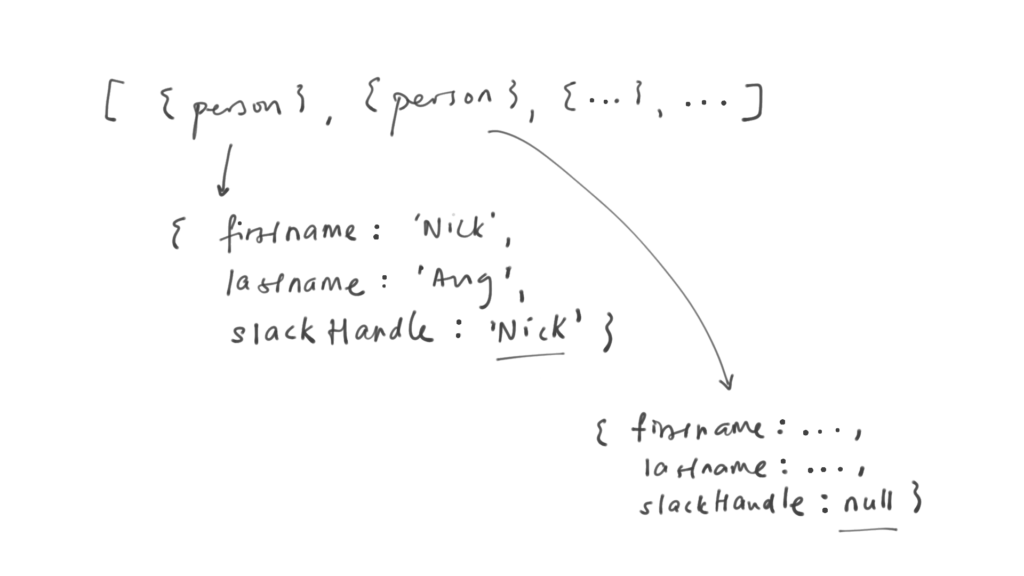 [ {person}, {person}, {...}, ... ]
{ firstname: 'Nick',
lastname: 'Ang',
slackHandle: 'Nick' }
{ firstname: ...,
lastname: ...,
slackHandle: null }